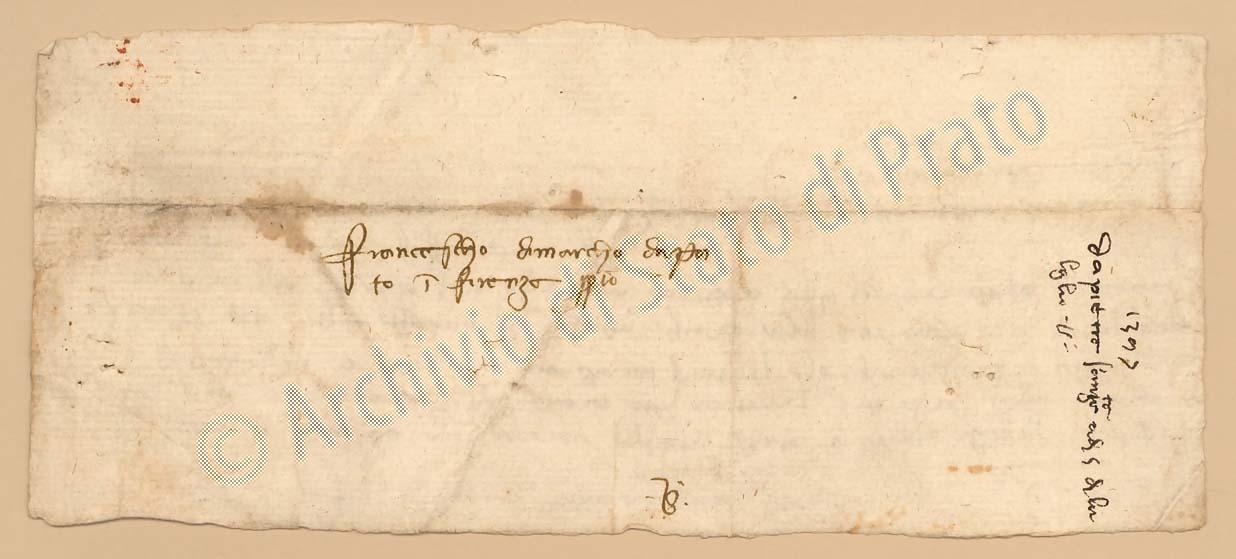 Francescho dimarcho dapra
to i firenze pprio
B
1397
Da pietre
adi 5 di lu
luglio
© Archivio di Stato di Prato